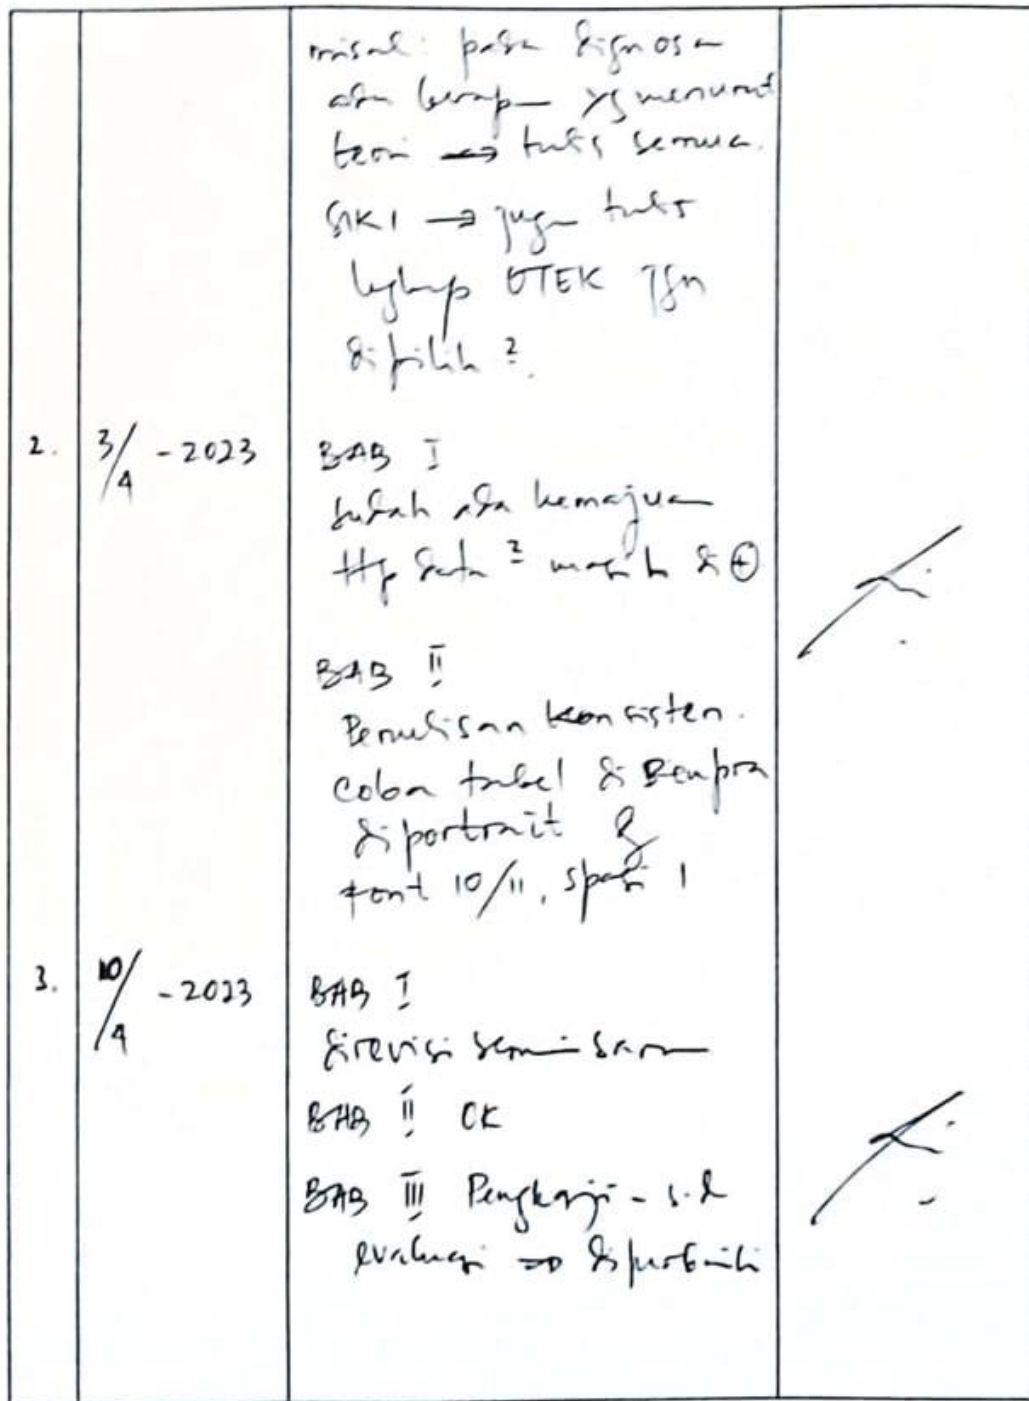 misal: pada dignosa
ada berap yg menurut
teori → tulis semua.
SIKI → juga tulis
lengkap OTEK jgn
dipilih ².
2. 3/4 - 2023 BAB I
sudah ada kemajuan
ttp data ² masih di ⊕
BAB II
Penulisan konsisten.
coba tabel di Renpra
diportrait &
font 10/11, spasi 1
3. 10/4 - 2023 BAB I
direvisi semi saran
BAB II OK
BAB III Pengkaji - s.d
evaluasi ⇒ diperbaiki